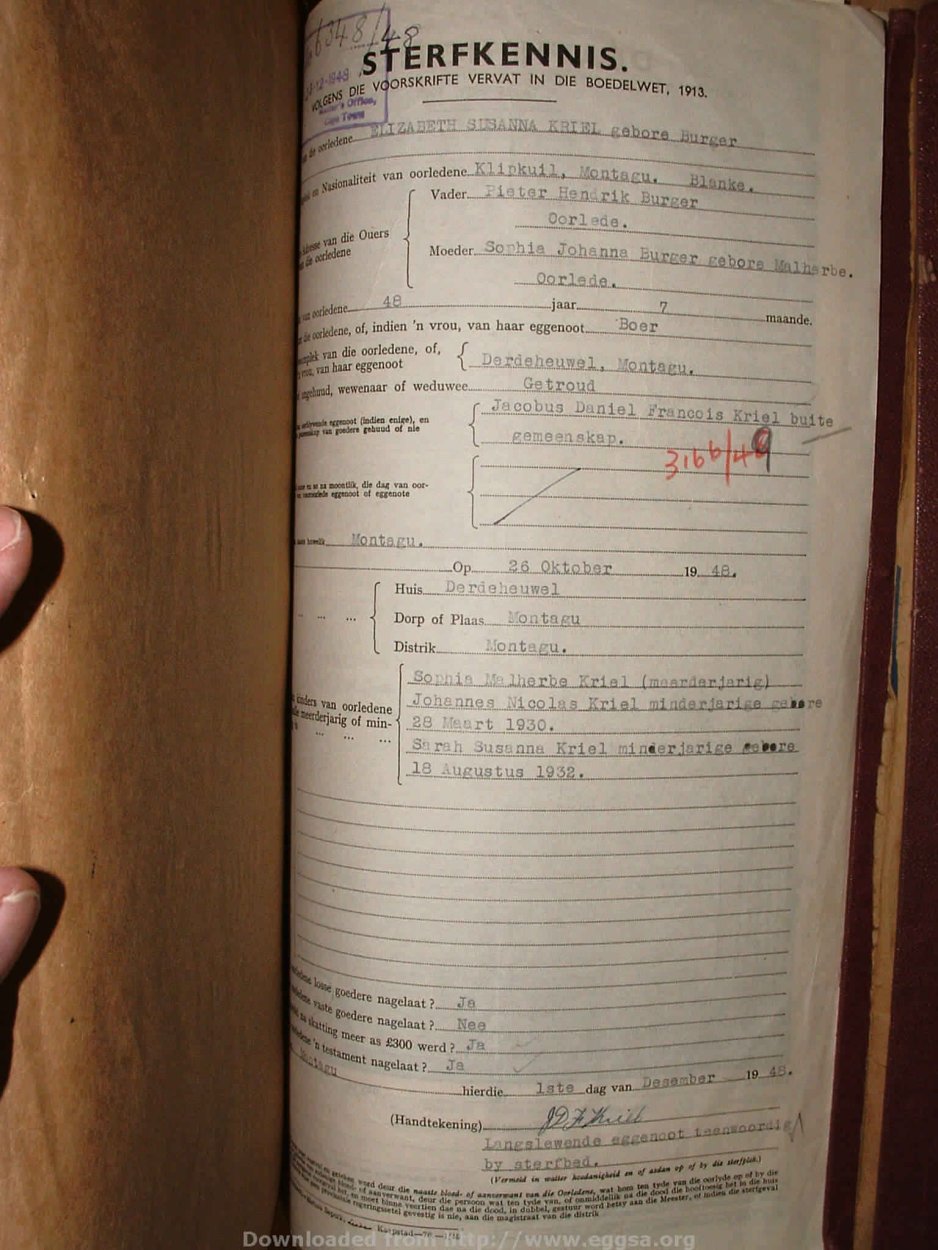 6348/48
STERFKENNIS.
-12-1948
VOLGENS DIE VOORSKRIFTE VERVAT IN DIE BOEDELWET, 1913.
Master's Office,
Cape Town
die oorledene ELIZABETH SUSANNA KRIEL gebore Burger
en Nasionaliteit van oorledene Klipkuil, Montagu. Blanke.
Vader Pieter Hendrik Burger
Oorlede.
Adresse van die Ouers
van die oorledene
Moeder Sophia Johanna Burger gebore Malherbe.
Oorlede.
van oorledene 48 jaar 7 maande.
die oorledene, of, indien 'n vrou, van haar eggenoot Boer
van die oorledene, of,
vrou, van haar eggenoot
Derdeheuwel, Montagu.
ongehuud, wewenaar of weduwee Getroud
eggenoot (indien enige), en
van goedere gehuud of nie
Jacobus Daniel Francois Kriel buite
gemeenskap.
3166/49
moontlik, die dag van oor-
eggenoot of eggenote
Montagu.
Op 26 Oktober 19 48.
Huis Derdeheuwel
Dorp of Plaas Montagu
Distrik Montagu.
Sophia Malherbe Kriel (meerderjarig)
kinders van oorledene
meerderjarig of min-
Johannes Nicolas Kriel minderjarige gebore
28 Maart 1930.
Sarah Susanna Kriel minderjarige gebore
18 Augustus 1932.
losse goedere nagelaat? Ja
vaste goedere nagelaat? Nee
na skatting meer as £300 werd? Ja
'n testament nagelaat? Ja
Montagu hierdie 1ste dag van Desember 19 48.
(Handtekening) JDF Kriel
Langslewende eggenoot teenwoordig
by sterfbed.
(Vermeld in watter hoedanigheid en of asdan op of by die sterfplek.)
Kaapstad
Downloaded from http://www.eggsa.org